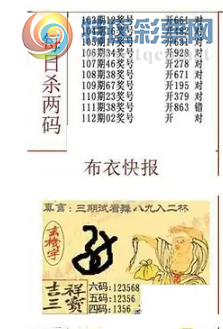 每日杀两码
104期16奖号 开449 对
105期17奖号 开634 对
106期34奖号 开928 对
107期46奖号 开278 对
108期38奖号 开671 对
109期67奖号 开195 对
110期23奖号 开379 对
111期38奖号 开863 错
112期02奖号 开 对
布衣快报
真言:三期试看舞八九入二林
玄机字
吉祥三宝
六码:123568
五码:12356
四码:1356